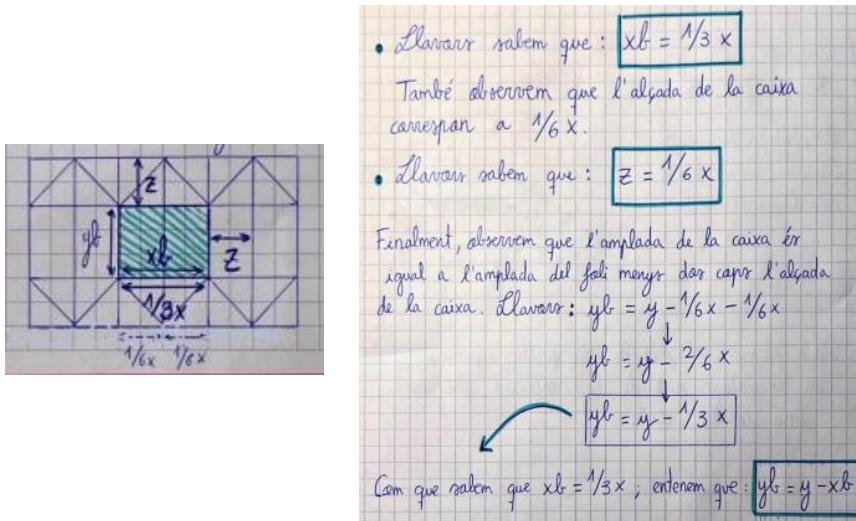 z
yb
xb
z
1/3x
1/6x 1/6x
• Llavors sabem que: xb = 1/3 x
També observem que l'alçada de la caixa
correspon a 1/6 x.
• Llavors sabem que: z = 1/6 x
Finalment, observem que l'amplada de la caixa és
igual a l'amplada del foli menys dos cops l'alçada
de la caixa. Llavors: yb = y - 1/6x - 1/6x
yb = y - 2/6 x
yb = y - 1/3 x
Com que sabem que xb = 1/3x ; entenem que: yb = y - xb